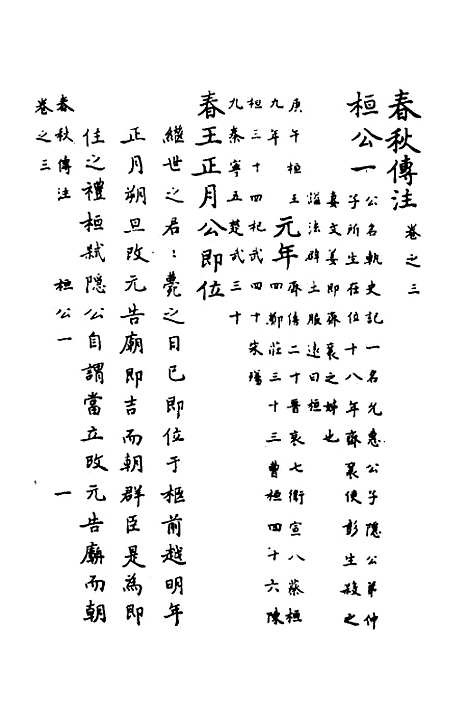 春秋傳注 卷之三
桓公一
公名軌史記一名允惠公子隱公弟仲
子所生在位十八年齊襄使彭生殺之
妻文姜即齊襄之姊也
謚法辟土服遠曰桓
庚午桓王
九年
元年
齊僖二十晉哀七衛宣八蔡桓
四鄭莊三十三曹桓四十六陳
桓三十四杞武四十宋殤
九秦寧五楚武三十
春王正月公即位
繼世之君〻薨之日已即位于柩前越明年
正月朔旦改元告廟即吉而朝群臣是為即
位之禮桓弒隱公自謂當立改元告廟而朝
春秋傳注 桓公一 一
卷之三